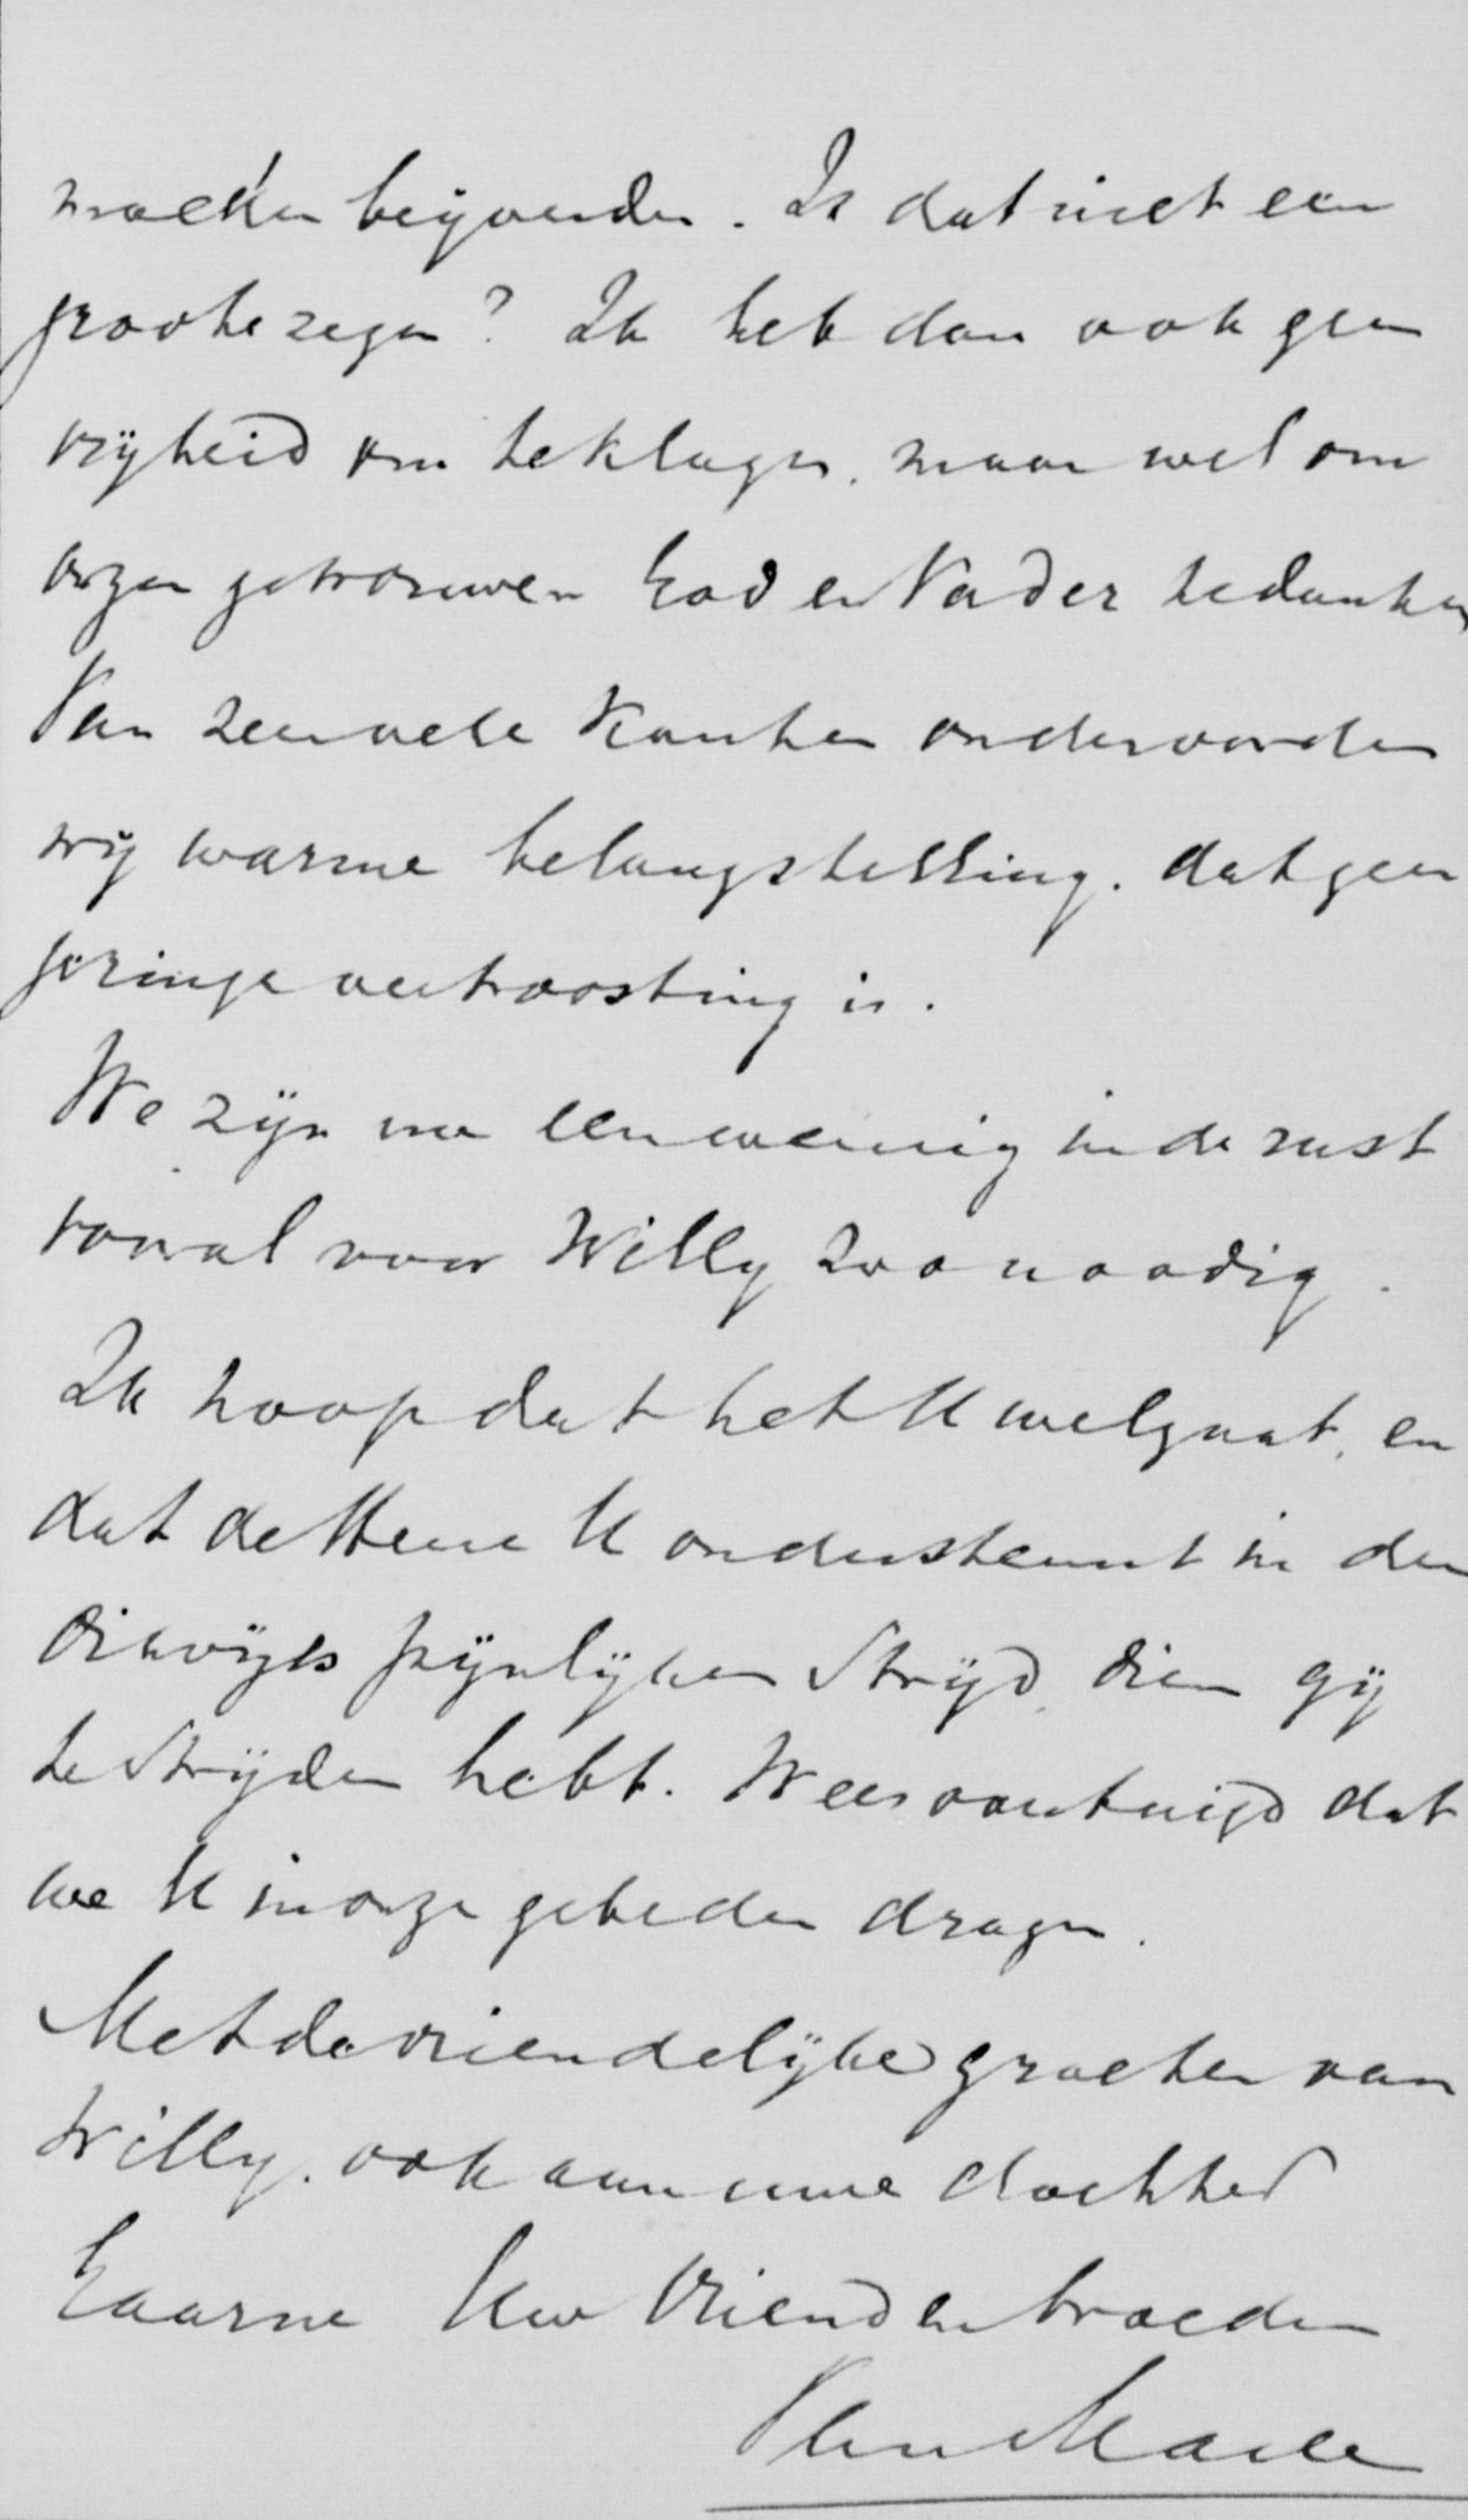 moeder bijzonder. Is dat niet een
groote zegen? Ik heb dan ook geen
vrijheid om te klagen. maar wel om
onzen getrouwen God en Vader te danken
Van zeer vele kanten ondervonden
wij warme belangstelling. dat geen
geringe vertroosting is.
We zijn nu een weinig in de rust
vooral voor Willy zoo noodig.
Ik hoop dat het U wel gaat, en
dat de Heere U ondersteunt in den
dikwijls pijnlijken strijd, dien gij
te strijden hebt. Wees overtuigd dat
we U in onze gebeden dragen.
Met de vriendelijke groeten van
Willy. ook aan uwe dochter
Gaarne Uw Vriend en broeder